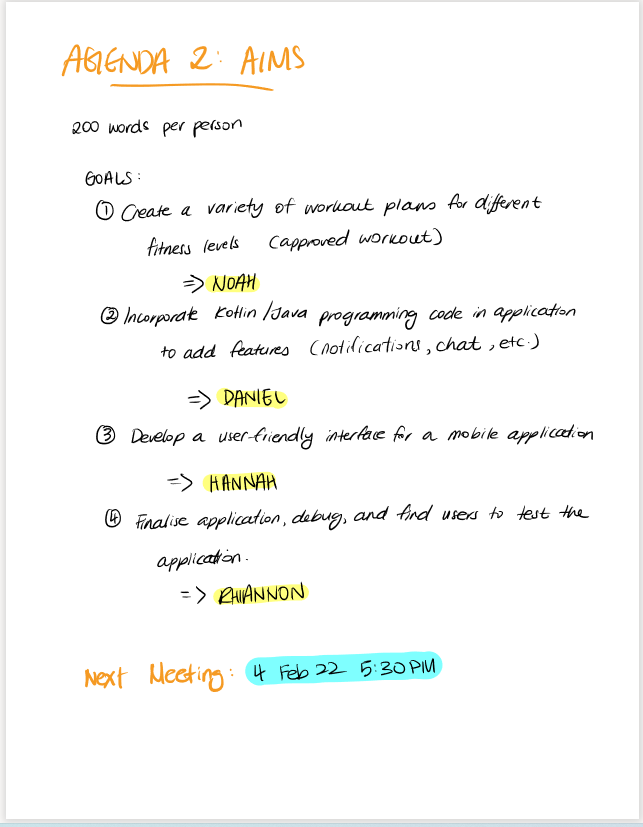 AGENDA 2: AIMS
200 words per person
GOALS:
① Create a variety of workout plans for different
fitness levels (approved workout)
=> NOAH
② Incorporate Kotlin/Java programming code in application
to add features (notifications, chat, etc.)
=> DANIEL
③ Develop a user-friendly interface for a mobile application
=> HANNAH
④ Finalise application, debug, and find users to test the
application.
=> RHIANNON
Next Meeting: 4 Feb 22 5:30 PM